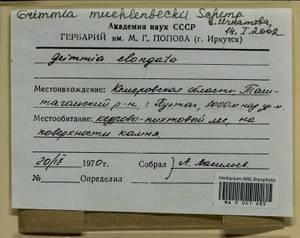 Grimmia muehlenbeckii Schimp.
Е. Игнатова,
14.I.2002
Академия наук СССР
ГЕРБАРИЙ им. М. Г. ПОПОВА (г. Иркутск)
Grimmia elongata
Местонахождение: Кемеровская область, Таш-
тагольский р-н, г. Пустаг, 1000 м над ур. м.
Местообитание: кедрово-пихтовый лес, на
поверхности камня
20/IX 1970 г. Собрал А. Васильев
№ Определил
Herbarium MW, Bryophyta
MW 9 041 689